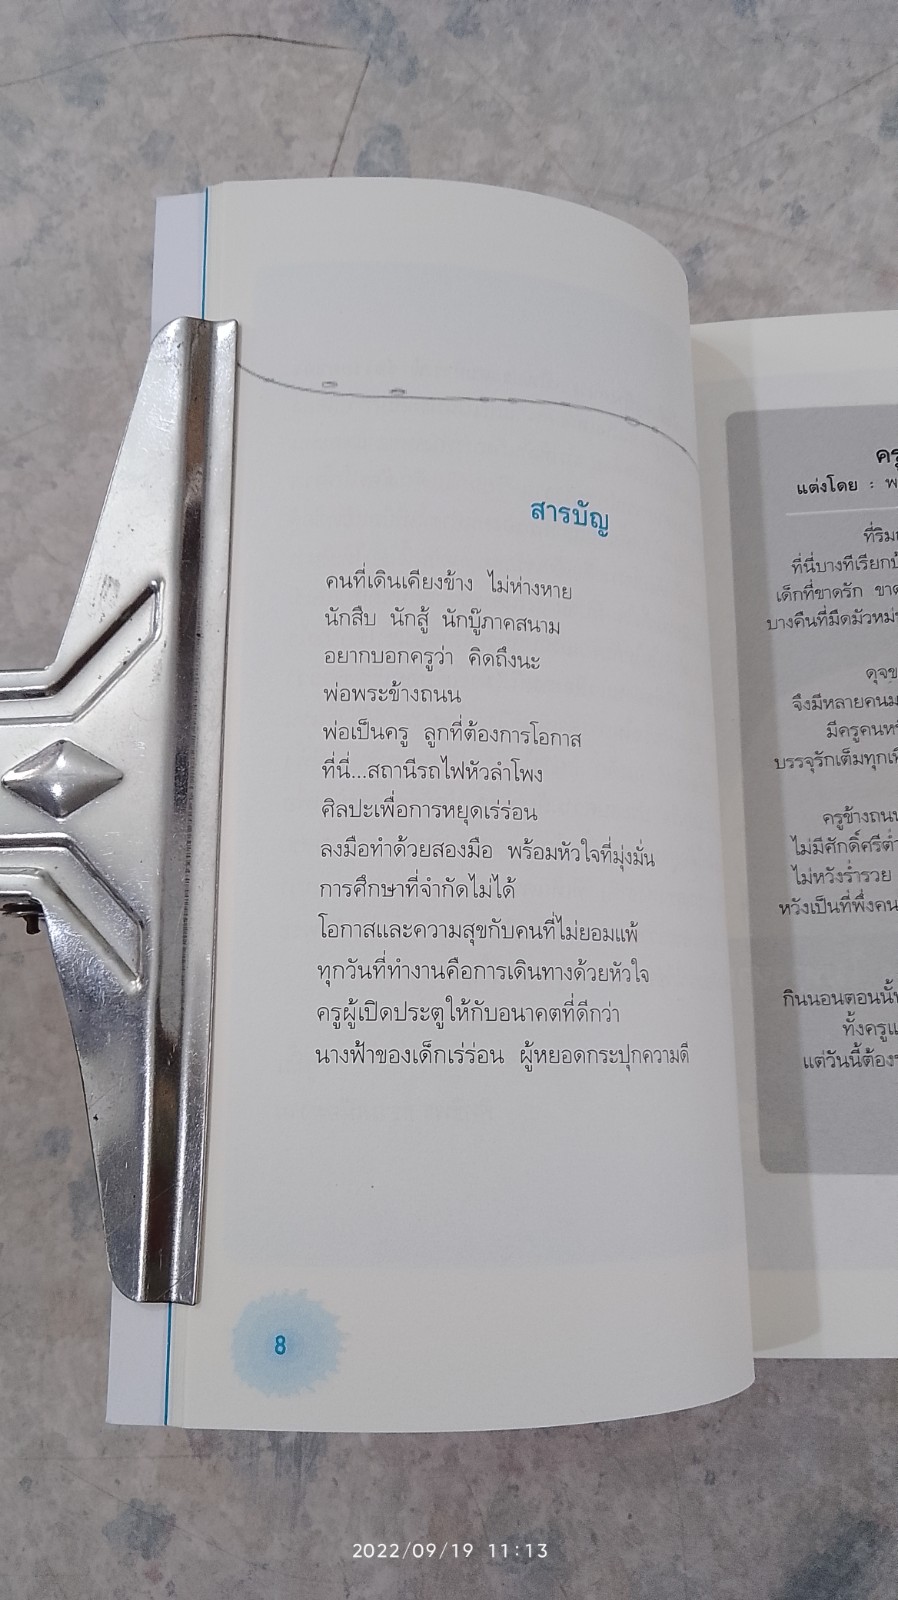 สารบัญ
คนที่เดินเคียงข้าง ไม่ห่างหาย
นักสืบ นักสู้ นักบู๊ภาคสนาม
อยากบอกครูว่า คิดถึงนะ
พ่อพระข้างถนน
พ่อเป็นครู ลูกที่ต้องการโอกาส
ที่นี่...สถานีรถไฟหัวลำโพง
ศิลปะเพื่อการหยุดเร่ร่อน
ลงมือทำด้วยสองมือ พร้อมหัวใจที่มุ่งมั่น
การศึกษาที่จำกัดไม่ได้
โอกาสและความสุขกับคนที่ไม่ยอมแพ้
ทุกวันที่ทำงานคือการเดินทางด้วยหัวใจ
ครูผู้เปิดประตูให้กับอนาคตที่ดีกว่า
นางฟ้าของเด็กเร่ร่อน ผู้หยอดกระปุกความดี
8
แต่งโดย :
ที่ริม
ที่นี่บางทีเรียก
เด็กที่ขาดรัก ขาด
บางคืนที่มืดมัวหม่
ดุจ
จึงมีหลายคน
มีครูคน
บรรจุรักเต็มทุก
ครูข้างถนน
ไม่มีศักดิ์ศรีต่ำ
ไม่หวังร่ำรวย
หวังเป็นที่พึ่งคน
กินนอนตอนนั้น
ทั้งครู
แต่วันนี้ต้อง
2022/09/19 11:13